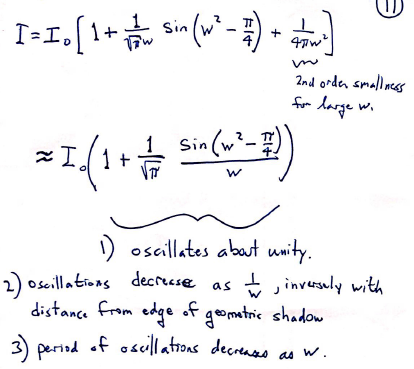 11
I = I₀ [1 + 1/(√π w) sin(w² − π/4) + 1/(4πw²)]
2nd order smallness
for large w.
≈ I₀ (1 + 1/√π sin(w² − π/4)/w)
1) oscillates about unity.
2) oscillations decrease as 1/w, inversely with
distance from edge of geometric shadow
3) period of oscillations decreases as w.